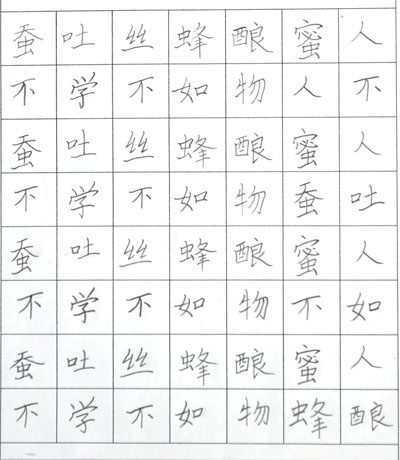 蚕吐丝蜂酿蜜人
不学不如物人不
蚕吐丝蜂酿蜜人
不学不如物蚕吐
蚕吐丝蜂酿蜜人
不学不如物不如
蚕吐丝蜂酿蜜人
不学不如物蜂酿